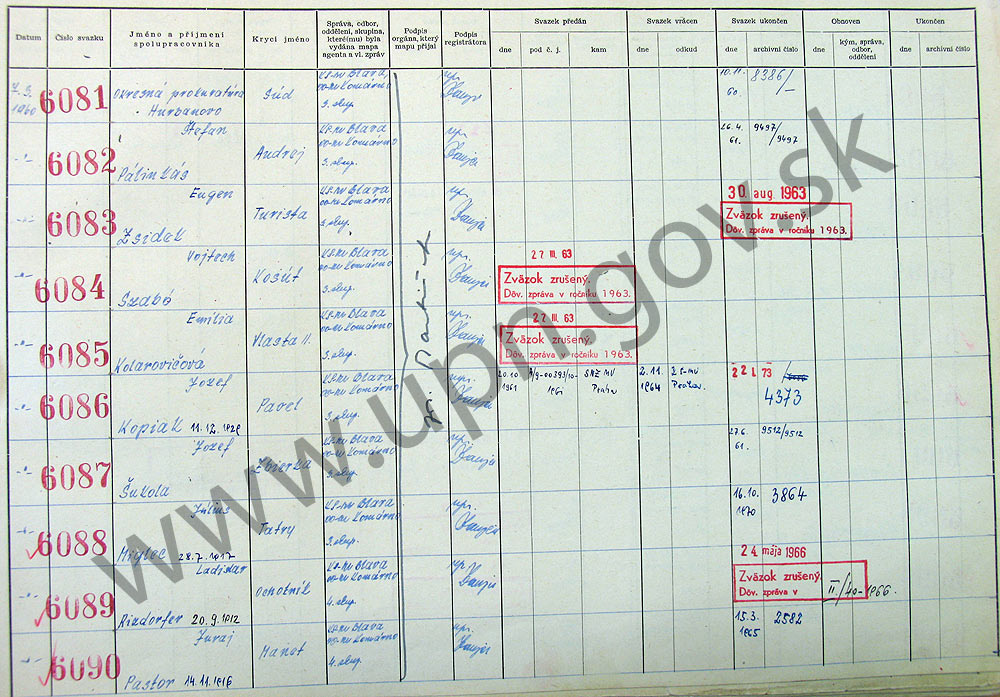 Datum
Číslo svazku
Jméno a příjmení
spolupracovníka
Krycí jméno
Správa, odbor,
oddělení, skupina,
které(mu) byla
vydána mapa
agenta a vl. zpráv
Podpis
orgána, který
mapu přijal
Podpis
registrátora
Svazek předán
dne
pod č. j.
kam
Svazek vrácen
dne
odkud
Svazek ukončen
dne
archivní číslo
Obnoven
dne
kým, správa,
odbor,
oddělení
Ukončen
dne
archivní číslo
7. 3.
1960
6081
Okresná prokuratúra
Hurbanovo
Súd
KS-MV Blava
OO-MV Komárno
3. skup.
10.11.
60.
8386/-
6082
Štefan
Pálinkás
Andrej
KS-MV Blava
OO-MV Komárno
3. skup.
26.4.
61.
9497/9497
6083
Eugen
Zsidek
Turista
KS-MV Blava
OO-MV Komárno
3. skup.
30. aug. 1963
Zväzok zrušený.
Dôv. zpráva v ročníku 1963.
6084
Vojtech
Szabó
Košút
KS-MV Blava
OO-MV Komárno
3. skup.
27 III. 63
Zväzok zrušený.
Dôv. zpráva v ročníku 1963.
6085
Emília
Kolarovičová
Vlasta II.
KS-MV Blava
OO-MV Komárno
3. skup.
27 III. 63
Zväzok zrušený.
Dôv. zpráva v ročníku 1963.
6086
Jozef
Kopiak 11.12.1929
Pavel
KS-MV Blava
OO-MV Komárno
3. skup.
20.10
1961
Praha
2.11.
1964
Praha.
22 I. 73
4373
6087
Jozef
Šukola
Zbierka
KS-MV Blava
OO-MV Komárno
3. skup.
27.6.
61.
9512/9512
6088
Július
Miglec 28.7.1917
Tatry
KS-MV Blava
OO-MV Komárno
3. skup.
16.10.
1970
3864
6089
Ladislav
Rizdorfer 20.9.1912
Ochotník
KS-MV Blava
OO-MV Komárno
4. skup.
24 mája 1966
Zväzok zrušený.
Dôv. zpráva v II/40-1966.
6090
Juraj
Pastor 14.11.1916
Manot
KS-MV Blava
OO-MV Komárno
4. skup.
15.3.
1965
2582
www.upn.gov.sk